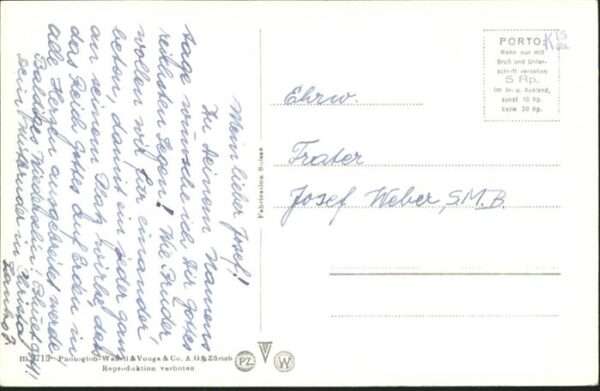 Mein lieber Josef!
Zu Deinem Namens
tage wünsche ich Dir Gottes
reichsten Segen! Wie Brüder,
wollen wir für einander
beten, damit ein jeder ganz
an seinem Platz wirke, daß
das Reich Gottes auf Erden in
alle Herzen ausgebreitet werde!
Baldiges Wiedersehn! Behüet Gott!
Dein Mitbruder in Christo
Ehrw.
Frater
Josef Weber, S.M.B.
PORTO:
Wenn nur mit
Gruß und Unter-
schrift versehen
5 Rp.
im In- u. Ausland,
sonst 10 Rp.
bezw. 20 Rp.
Fabrication Suisse
Photoglob-Wehrli & Vouga & Co. A.G. Zürich
Reproduktion verboten
PZ
W